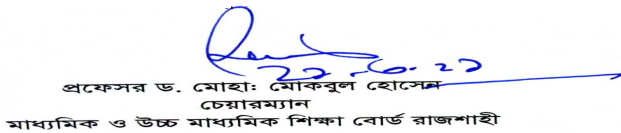 ২১-৬-২১
প্রফেসর ড. মোহাঃ মোকবুল হোসেন
চেয়ারম্যান
মাধ্যমিক ও উচ্চ মাধ্যমিক শিক্ষা বোর্ড রাজশাহী